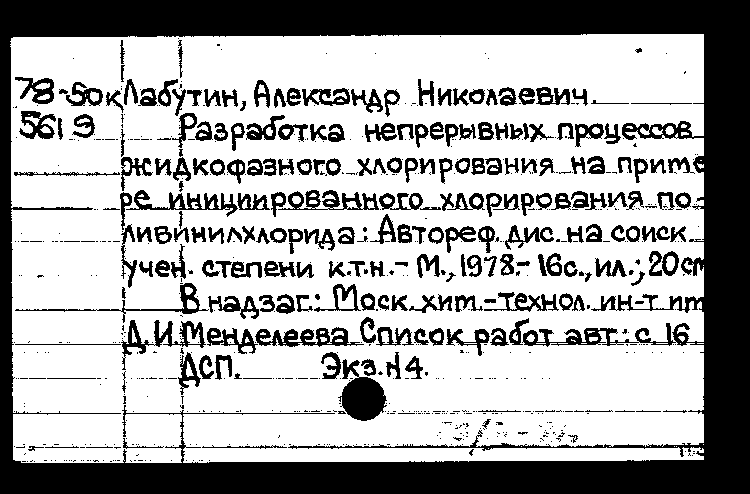 78-50к Лабутин, Александр Николаевич.
5619 Разработка непрерывных процессов
жидкофазного хлорирования на приме
ре инициированного хлорирования по-
ливинилхлорида: Автореф. дис. на соиск.
учен. степени к.т.н.- М., 1978.- 16с., ил.; 20см
В надзаг.: Моск. хим.-технол. ин-т им
Д. И. Менделеева. Список работ авт.: с. 16.
ДСП. Экз. №4.